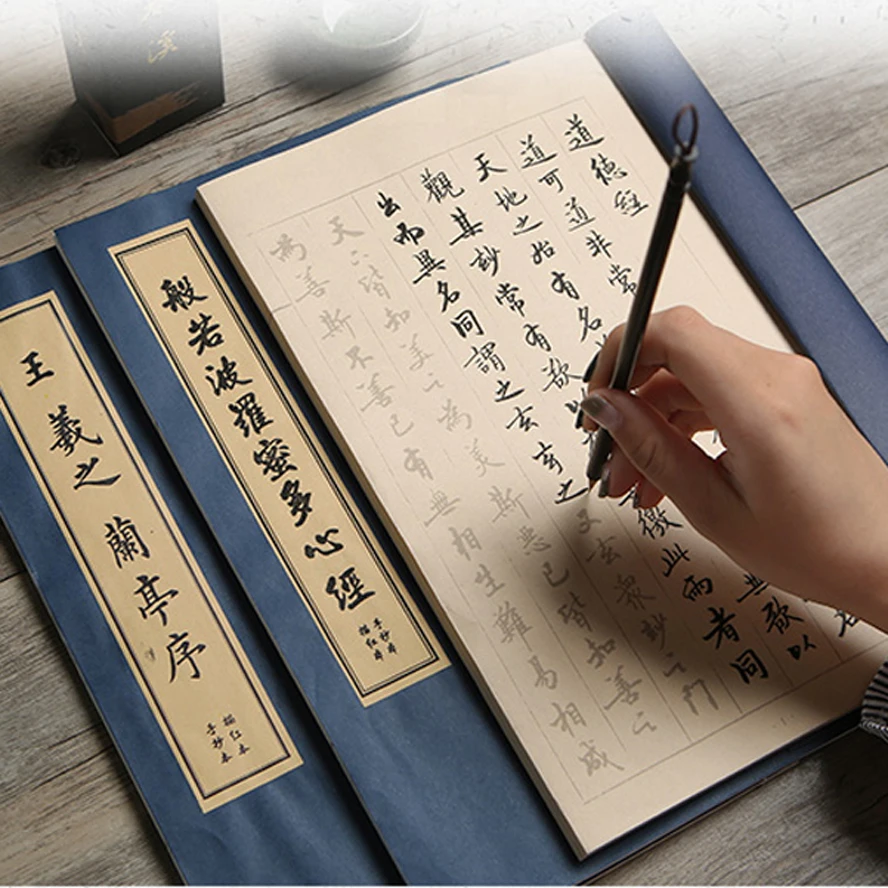 道德經
道可道非常
天地之始有名 無欲以
觀其妙常有欲以 徼此兩者同
出而異名同謂之玄玄之又玄衆妙之門
天下皆知美之為美斯惡已皆知善之
為善斯不善已有無相生難易相成
般若波羅蜜多心經
手抄本
描红本
王羲之 蘭亭序
描红本
手抄本
溪